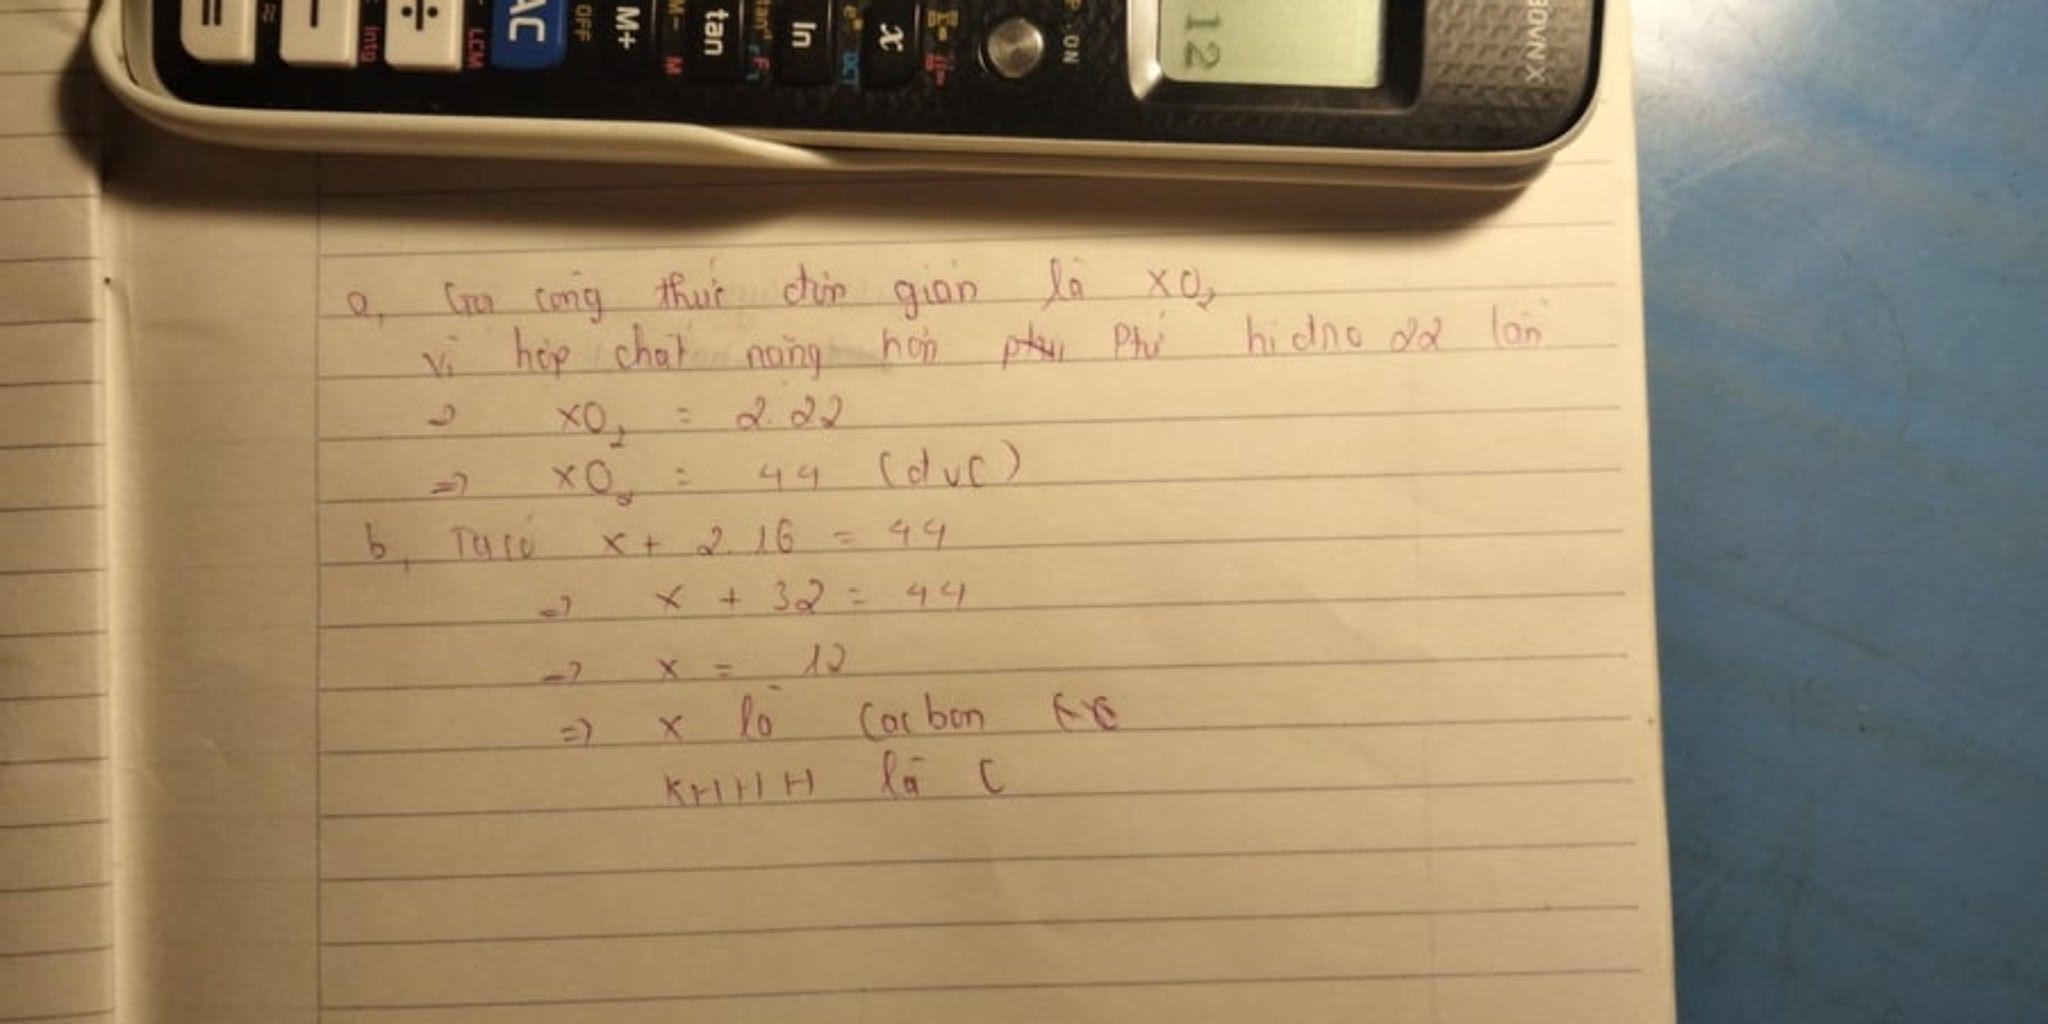 = − ÷ AC M+ tan ln x
≈ Intg LCM OFF M− M F₁ OCT ON
12
a, Gọi công thức đơn giản là XO₂
Vì hợp chất nặng hơn phtu Phử hidno 22 lần
⇒ XO₂ = 2.22
⇒ XO₂ = 44 (đvC)
b, Ta có X + 2.16 = 44
⇒ X + 32 = 44
⇒ X = 12
⇒ X là Cacbon
KHHH là C